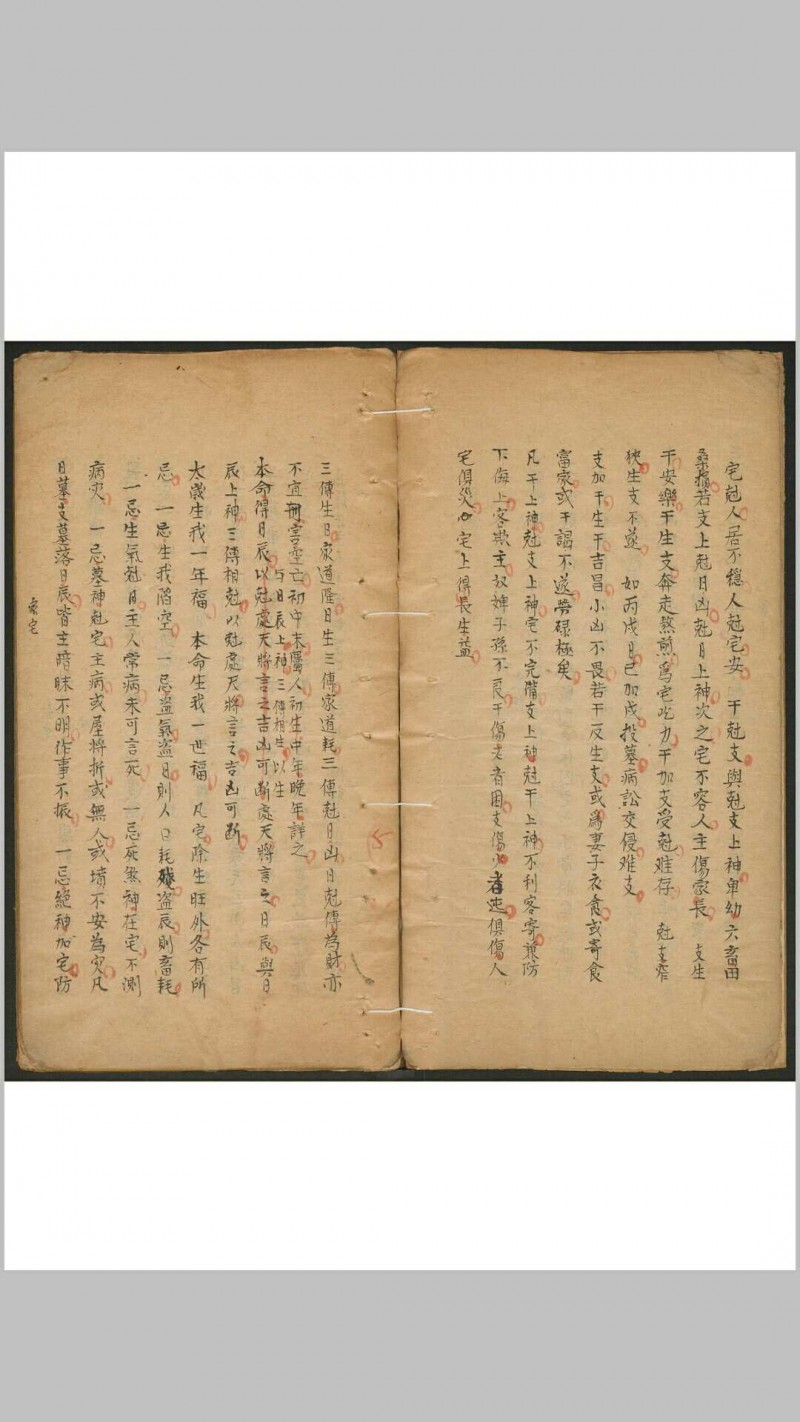 宅尅人居不穩人尅宅安 干尅支與尅支上神卑幼六畜田
桑損若支上尅日凶尅日上神次之宅不容人主傷家長 支生
干安樂干生支奔走熬煎爲宅吃力干加支受尅难存 尅支窄
狹生支不遂 如丙戌日巳加戌投墓病訟交侵难支
支加干生干吉昌小凶不畏若干反生支或爲妻子衣食或寄食
富家或干謁不遂勞碌極矣
凡干上神尅支上神宅不完備支上神尅干上神不利客寄兼防
下侮上客欺主奴婢子孫不良干傷老者困支傷小者迍俱傷人
宅俱災 宅上得長生益
三傳生日家道隆日生三傳家道耗三傳尅日凶日尅傳為財亦
不宜刑害空亡初中末屬人初生中年晚年詳之
与日辰上神三傳相生以生
本命得日辰以尅處天將言之吉凶可断處天將言之日辰與日
辰上神三傳相尅以尅處天將言之吉凶可断
太歲生我一年福 本命生我一世福 凡宅除生旺外各有所
忌 一忌生我陷空 一忌盜氣盜日則人口耗殘盜辰則畜耗
一忌生氣尅日主人常病未可言死 一忌死煞神在宅不測
病灾 一忌墓神尅宅主病或屋將折或無人或墳不安為灾凡
日墓支墓落日辰皆主暗昧不明作事不振 一忌絕神加宅防
家宅